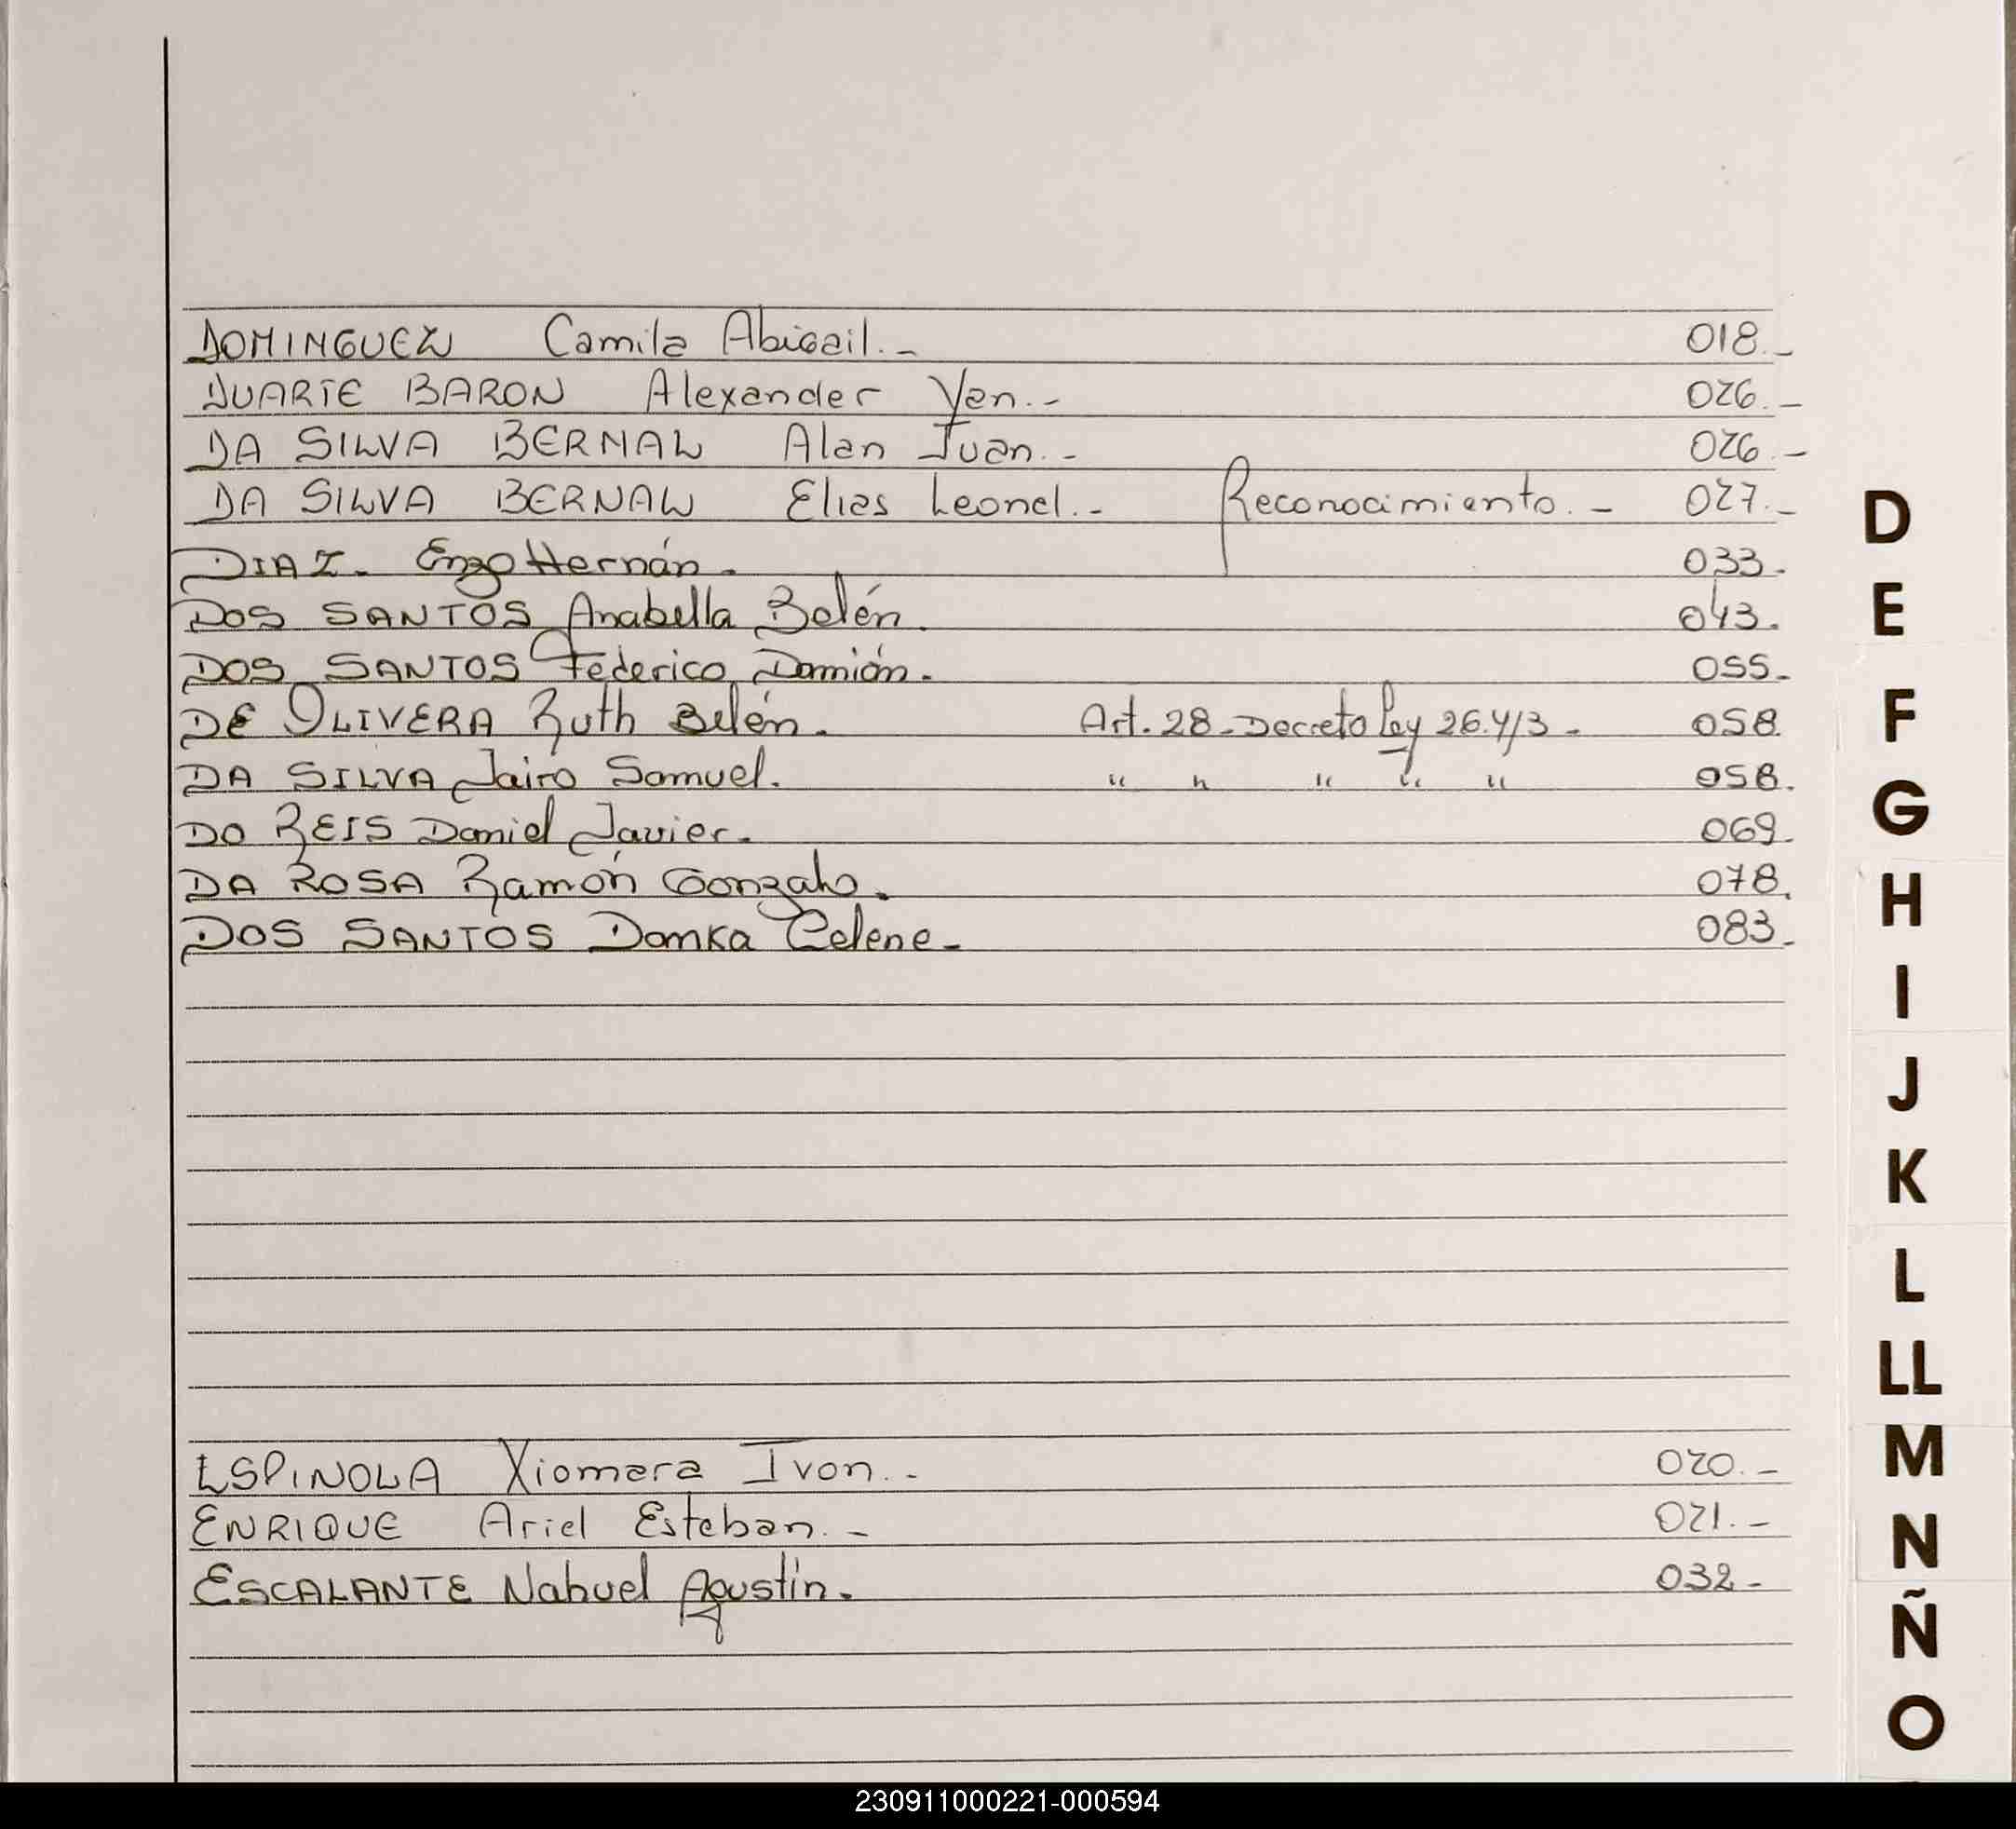 DOMINGUEZ Camila Abigail.- 018.-
DUARTE BARON Alexander Yan.- 026.-
DA SILVA BERNAL Alan Juan.- 026.-
DA SILVA BERNAL Elias Leonel.- Reconocimiento.- 027.-
DIAZ. Enzo Hernán. 033.
DOS SANTOS Anabella Belén. 043.
DOS SANTOS Federico Damián. 055.
DE OLIVERA Ruth Belén. Art. 28-Decreto Ley 26.413- 058.
DA SILVA Jairo Samuel. " " " " " 058.
DO REIS Daniel Javier. 069.
DA ROSA Ramón Gonzalo. 078.
DOS SANTOS Danka Celene- 083.
ESPINOLA Xiomara Ivon.- 020.-
ENRIQUE Ariel Esteban.- 021.-
ESCALANTE Nahuel Agustín. 032-
D
E
F
G
H
I
J
K
L
LL
M
N
Ñ
O
230911000221-000594